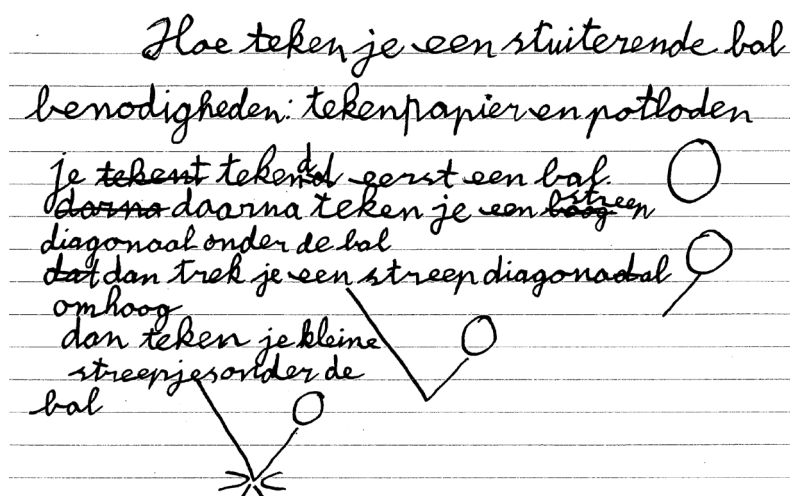 Hoe teken je een stuiterende bal
benodigheden: tekenpapier en potloden
je tekent tekend eerst een bal.
darna daarna teken je een boog streep
diagonaal onder de bal
dat dan trek je een streep diagonaal
omhoog
dan teken je kleine
streepjes onder de
bal